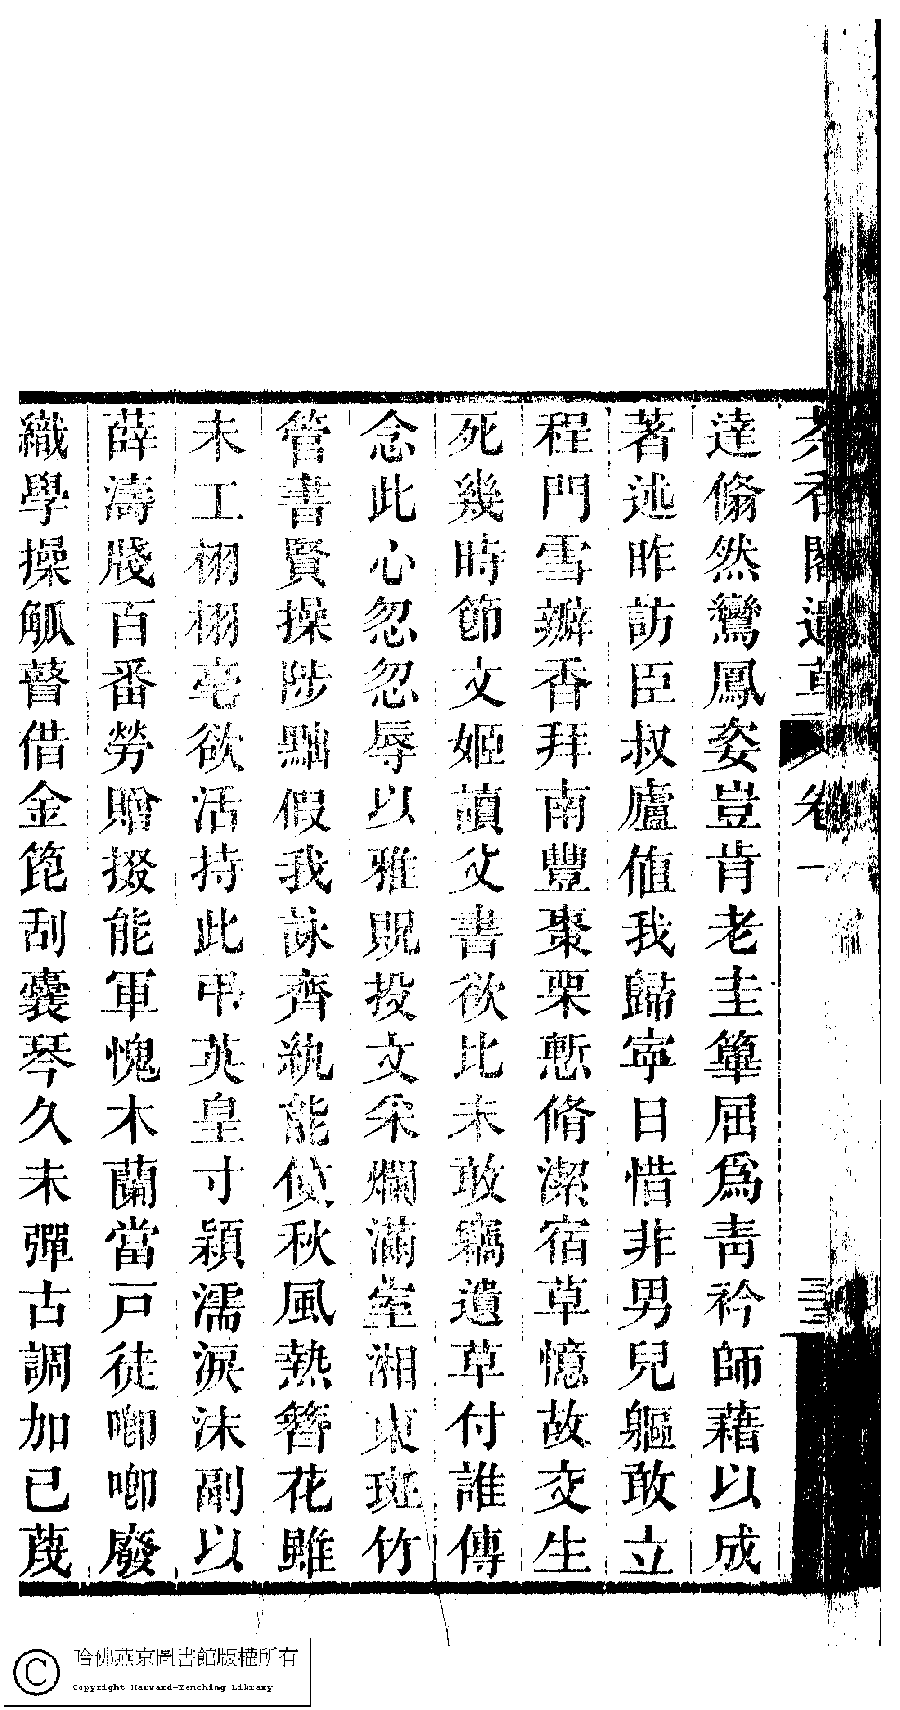 茶香閣遺草 卷一
達翛然鸞鳳姿豈肯老圭篳屈爲青衿師藉以成
著述昨訪臣叔廬值我歸寧日惜非男兒軀敢立
程門雪瓣香拜南豐棗栗慙脩潔宿草憶故交生
死幾時節文姬讀父書欲比未敢竊遺草付誰傳
念此心忽忽辱以雅貺投文采爛滿室湘東斑竹
管書賢操陟黜假我詠齊紈能僨秋風熱簪花雖
未工栩栩毫欲活持此弔英皇寸穎濡淚沫副以
薛濤牋百番勞贈掇能軍愧木蘭當戸徒唧唧廢
織學操觚瞽借金篦刮囊琴久未彈古調加已蔑
哈佛燕京圖書館版權所有
Copyright Harvard-Yenching Library